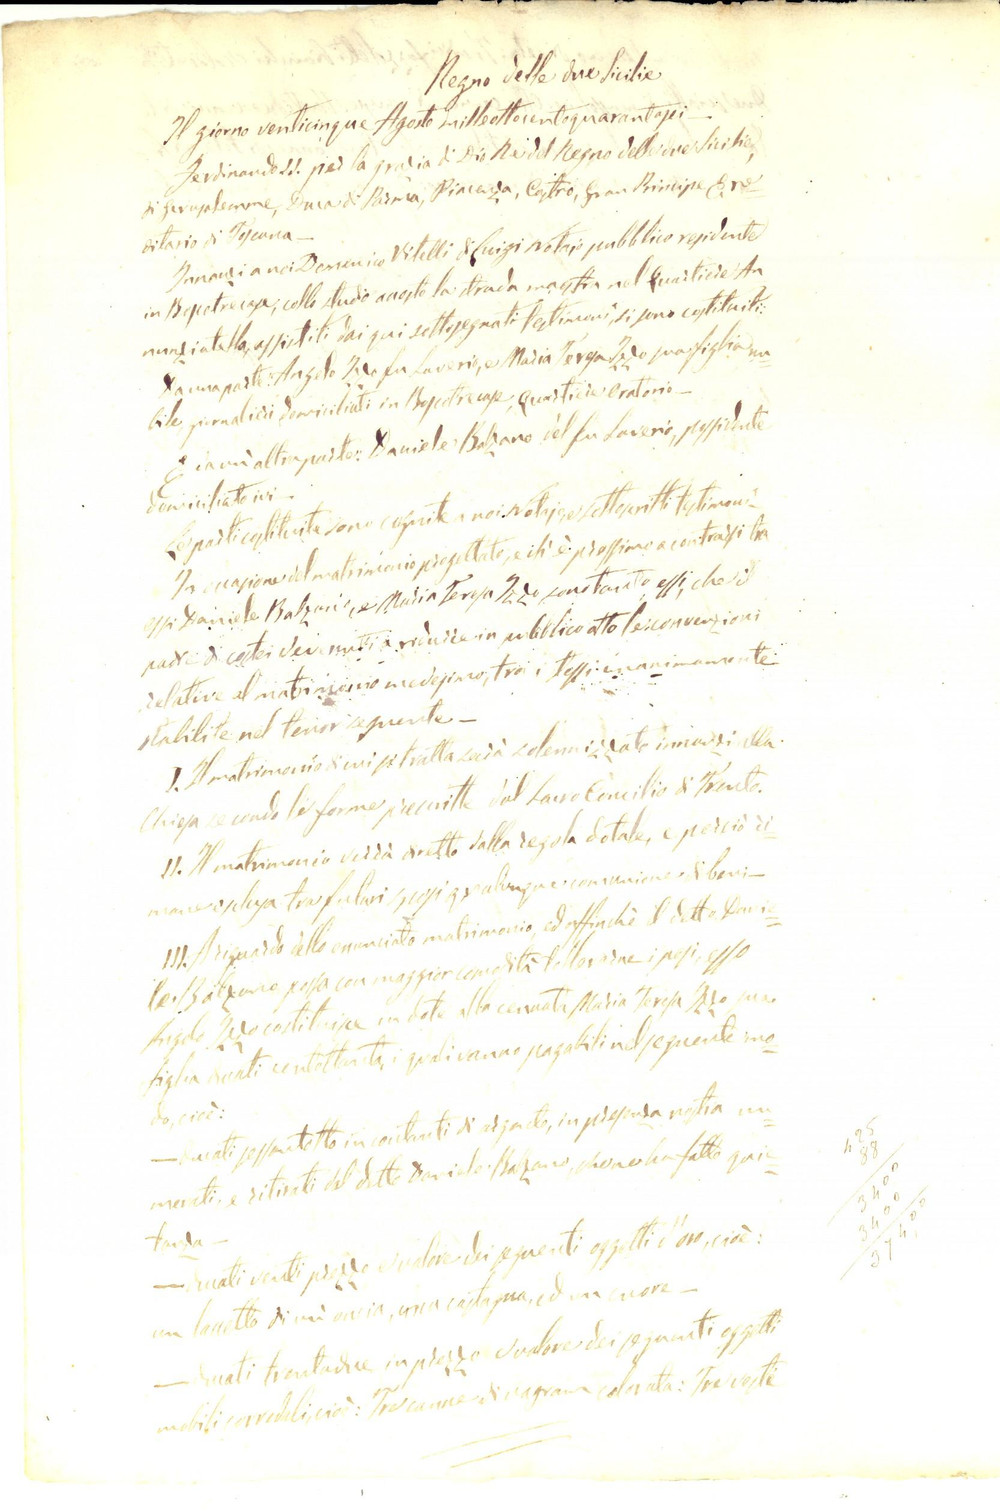 Regno delle due Sicilie
Il giorno venticinque Agosto milleottocentoquarantasei —
Ferdinando II. per la grazia di Dio Re del Regno delle due Sicilie,
di Gerusalemme, Duca di Parma, Piacenza, Castro, Gran Principe Ere=
ditario di Toscana —
Innanzi a noi Domenico Vitelli di Luigi Notaio pubblico residente
in Boscotrecase, collo studio accosto la strada maestra nel Quartiere An
nunziatella, assistiti dai qui sottosegnati testimoni, si sono costituiti:
Da una parte: Angelo Izzo fu Saverio, e Maria Teresa Izzo sua figlia nu=
bile, giornalieri domiciliati in Boscotrecase, Quartiere Oratorio —
E da un'altra parte: Daniele Balzano del fu Saverio, possidente
domiciliato ivi —
Le parti costituite sono cognite a noi Notajo, e sottoscritti testimoni —
In occasione del matrimonio progettato, e ch'è prossimo a contrarsi tra
essi Daniele Balzano, e Maria Teresa Izzo essi, che il
padre di costei a ridurre in pubblico atto le convenzioni
relative al matrimonio medesimo, tra i stessi unanimamente
stabilite nel tenor seguente —
I. Il matrimonio di cui si tratta sarà solennizzato innanzi alla
Chiesa secondo le forme prescritte dal Sacro Concilio di Trento.
II. Il matrimonio verrà retto dalla regola dotale, e perciò ri=
mane esclusa tra futuri sposi qualunque comunione di beni —
III. A riguardo dello enunciato matrimonio, ed affinchè il detto Danie=
le Balzano possa con maggior comodità tollerarne i pesi, esso
Angelo Izzo costituisce in dote alla cennata Maria Teresa Izzo sua
figlia ducati centottanta, i quali vanno pagabili nel seguente mo=
do, cioè:
— Ducati sessantotto in contanti di argento, in presenza nostra nu=
merati, e ritirati dal detto Daniele Balzano, che ne ha fatto quie=
tanza —
— Ducati venti prezzo e valore dei seguenti oggetti d'oro, cioè:
un laccetto di un'oncia, una castagna, ed un cuore —
— Ducati trentadue in prezzo e valore dei seguenti oggetti
mobili corredali, cioè: Tre canne di colorata: Tre vesti
425
88
3400
3400
37400